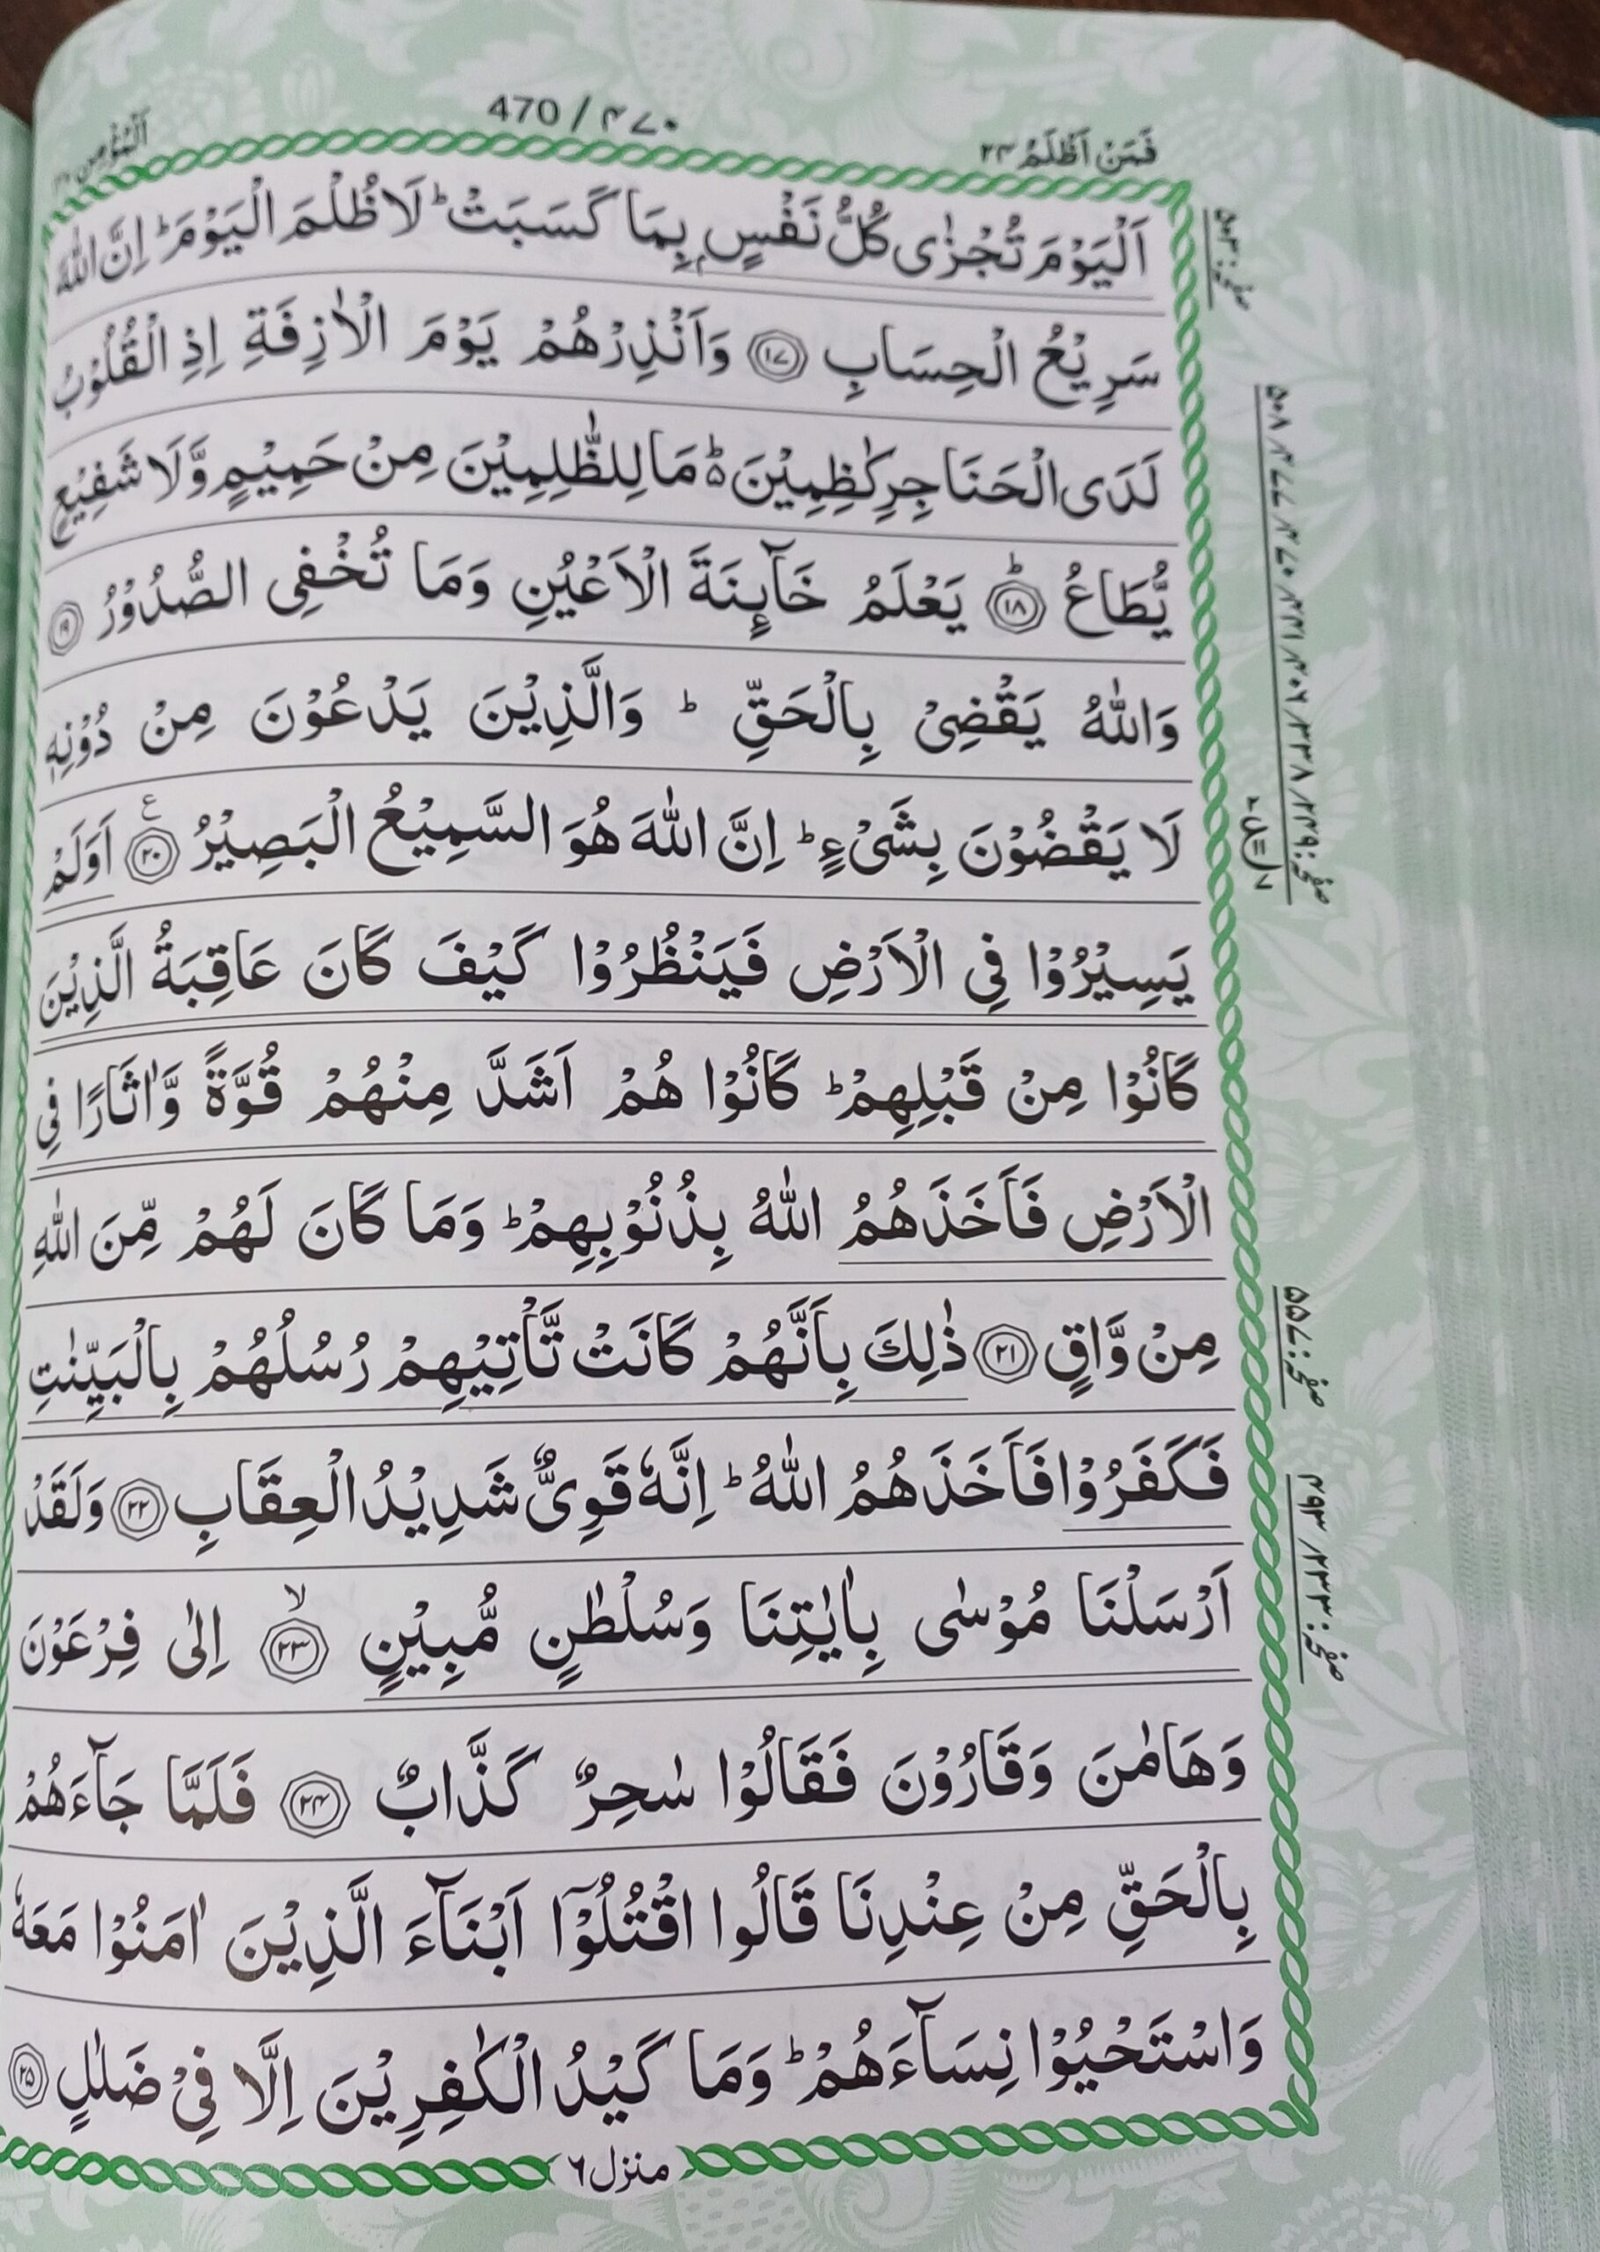 اَلْمُؤْمِن ٤٠
470 / ۴۷۰
فَمَنْ اَظْلَمُ ۲۴
اَلْيَوْمَ تُجْزٰى كُلُّ نَفْسٍۭ بِمَا كَسَبَتْ ؕ لَا ظُلْمَ الْيَوْمَ ؕ اِنَّ اللّٰهَ
سَرِيْعُ الْحِسَابِ ۝۱۷ وَاَنْذِرْهُمْ يَوْمَ الْاٰزِفَةِ اِذِ الْقُلُوْبُ
لَدَى الْحَنَاجِرِ كٰظِمِيْنَ ؕ۬ مَا لِلظّٰلِمِيْنَ مِنْ حَمِيْمٍ وَّلَا شَفِيْعٍ
يُّطَاعُ ۝۱۸ؕ يَعْلَمُ خَآىِٕنَةَ الْاَعْيُنِ وَمَا تُخْفِى الصُّدُوْرُ ۝۱۹
وَاللّٰهُ يَقْضِىْ بِالْحَقِّ ؕ وَالَّذِيْنَ يَدْعُوْنَ مِنْ دُوْنِهٖ
لَا يَقْضُوْنَ بِشَىْءٍ ؕ اِنَّ اللّٰهَ هُوَ السَّمِيْعُ الْبَصِيْرُ ۝۲۰ ع اَوَلَمْ
يَسِيْرُوْا فِى الْاَرْضِ فَيَنْظُرُوْا كَيْفَ كَانَ عَاقِبَةُ الَّذِيْنَ
كَانُوْا مِنْ قَبْلِهِمْ ؕ كَانُوْا هُمْ اَشَدَّ مِنْهُمْ قُوَّةً وَّاٰثَارًا فِى
الْاَرْضِ فَاَخَذَهُمُ اللّٰهُ بِذُنُوْبِهِمْ ؕ وَمَا كَانَ لَهُمْ مِّنَ اللّٰهِ
مِنْ وَّاقٍ ۝۲۱ ذٰلِكَ بِاَنَّهُمْ كَانَتْ تَّاْتِيْهِمْ رُسُلُهُمْ بِالْبَيِّنٰتِ
فَكَفَرُوْا فَاَخَذَهُمُ اللّٰهُ ؕ اِنَّهٗ قَوِىٌّ شَدِيْدُ الْعِقَابِ ۝۲۲ وَلَقَدْ
اَرْسَلْنَا مُوْسٰى بِاٰيٰتِنَا وَسُلْطٰنٍ مُّبِيْنٍ ۝۲۳ۙ اِلٰى فِرْعَوْنَ
وَهَامٰنَ وَقَارُوْنَ فَقَالُوْا سٰحِرٌ كَذَّابٌ ۝۲۴ فَلَمَّا جَآءَهُمْ
بِالْحَقِّ مِنْ عِنْدِنَا قَالُوا اقْتُلُوْۤا اَبْنَآءَ الَّذِيْنَ اٰمَنُوْا مَعَهٗ
وَاسْتَحْيُوْا نِسَآءَهُمْ ؕ وَمَا كَيْدُ الْكٰفِرِيْنَ اِلَّا فِىْ ضَلٰلٍ ۝۲۵
منزل ۶
صفحہ: ۵۰۳
صفحہ: ۵۵۷
صفحہ: ۲۳۳ / ۴۹۳